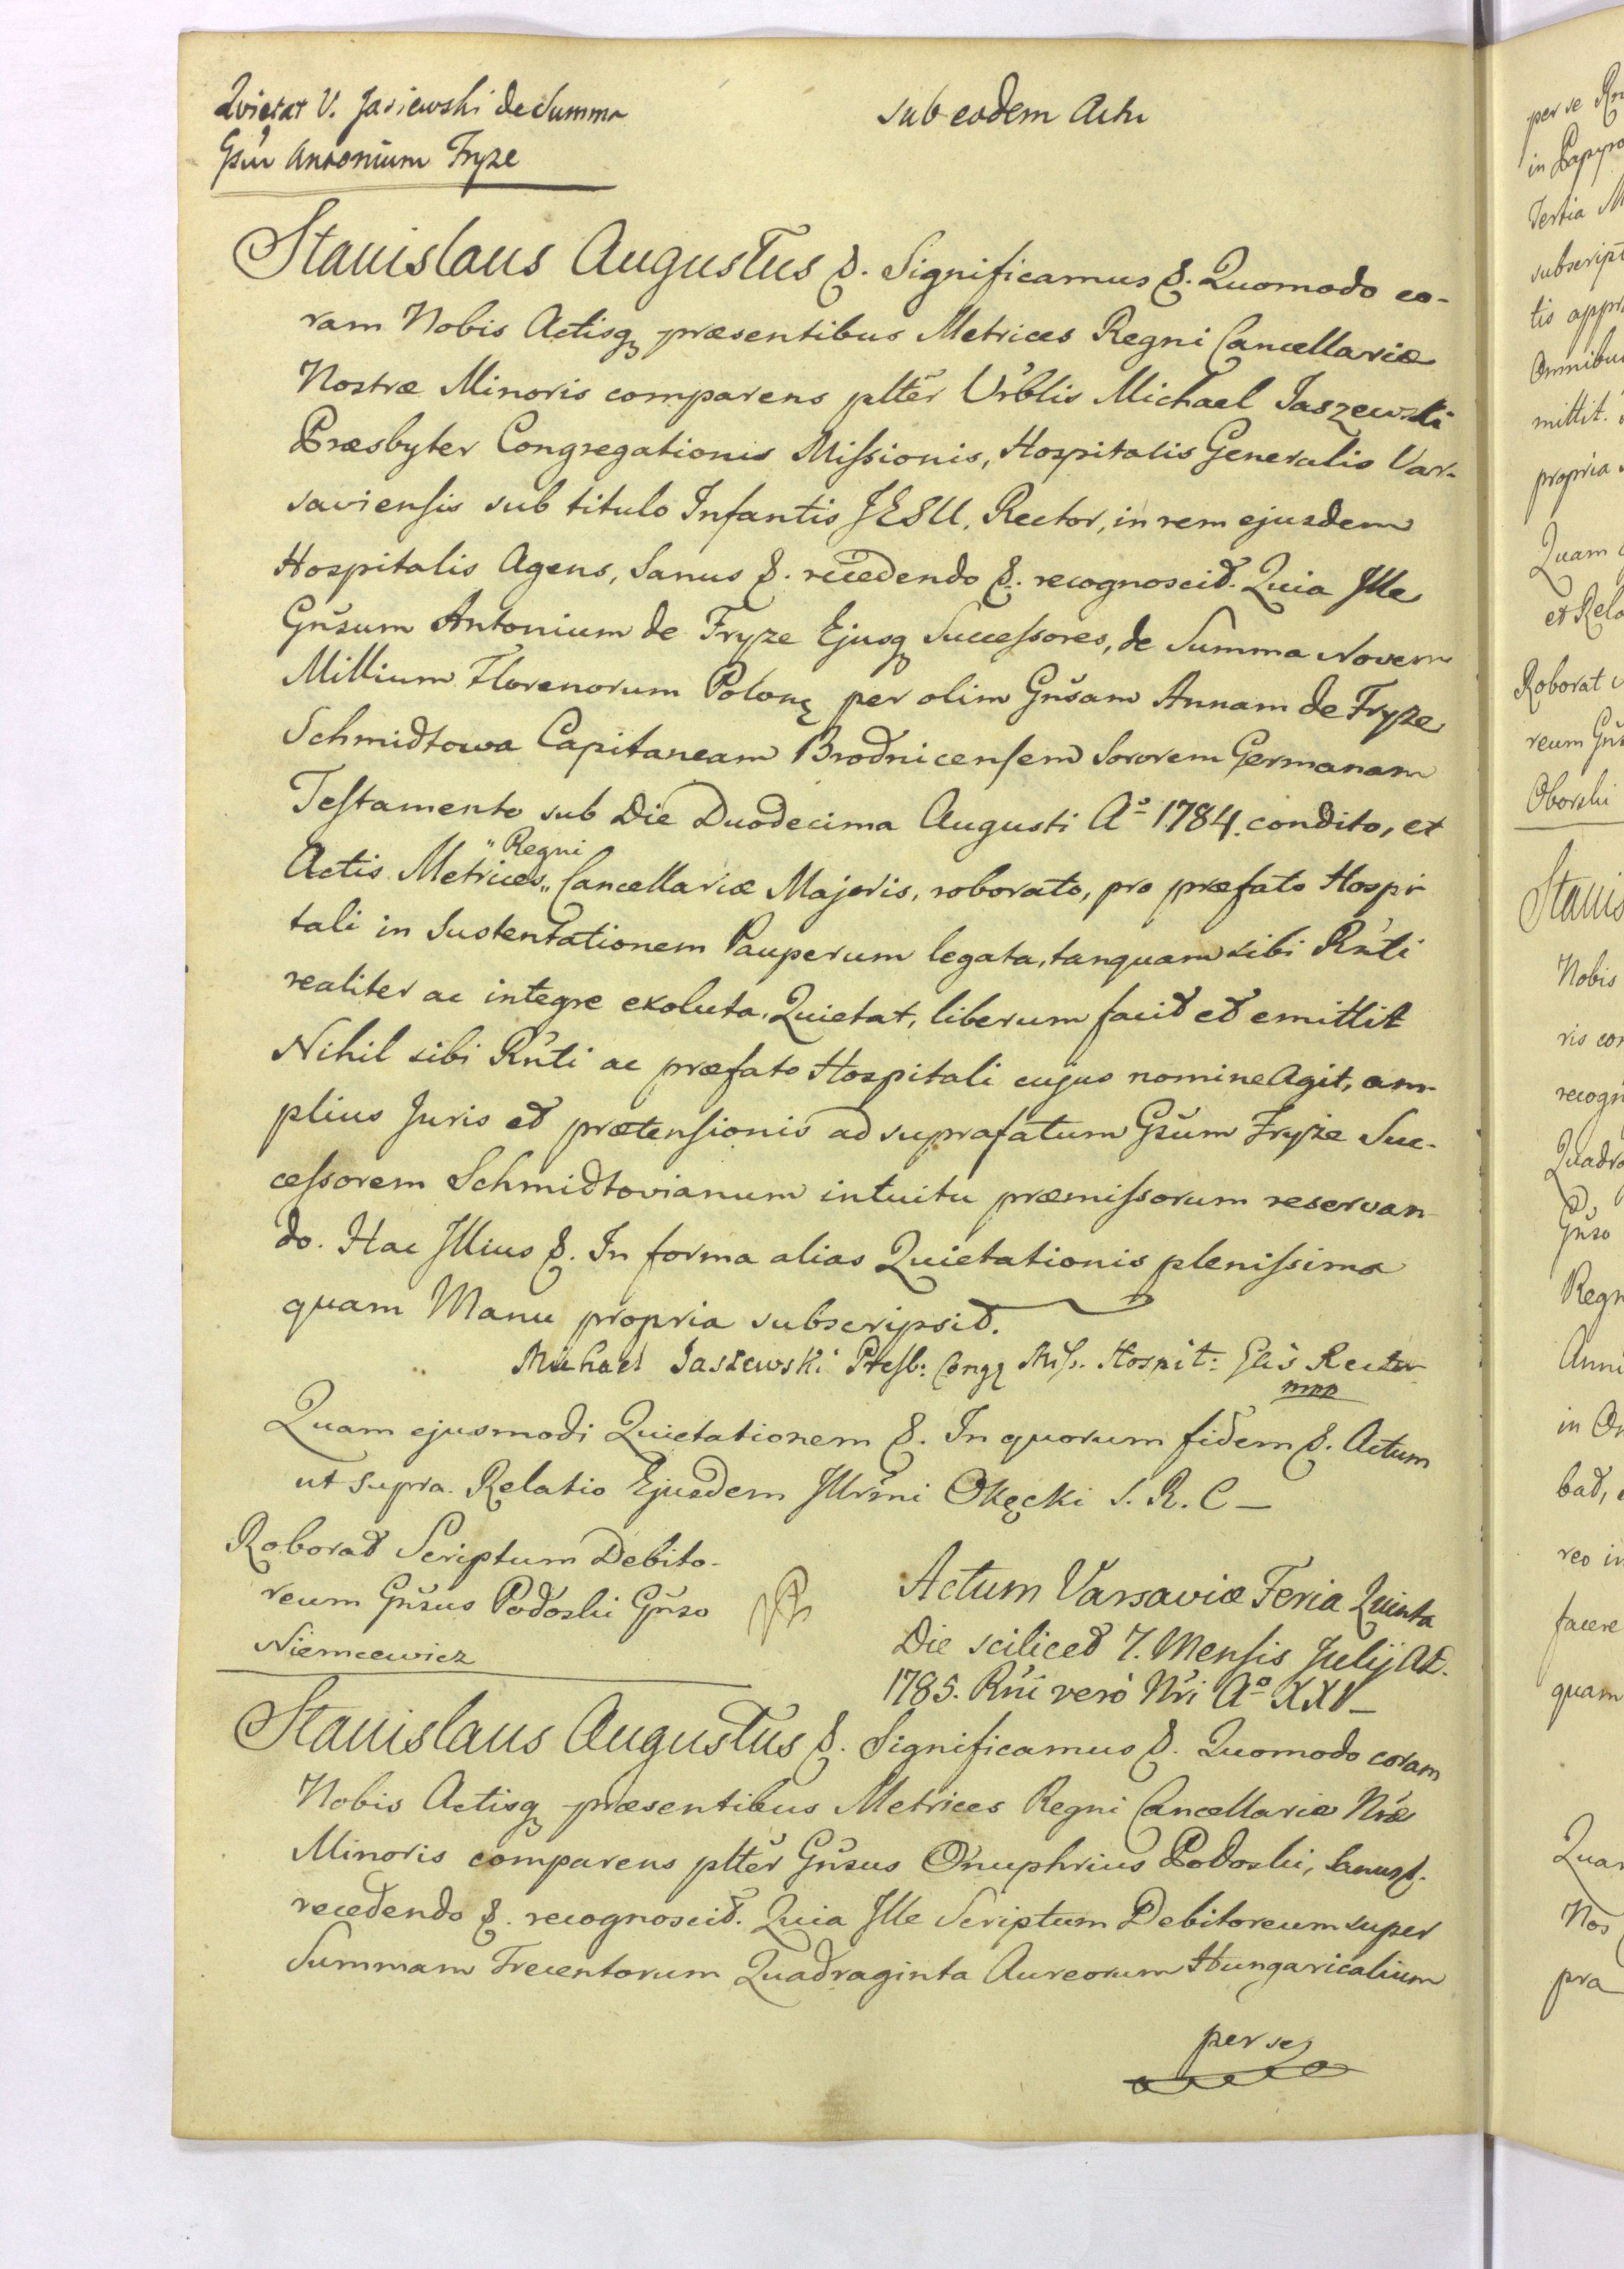 Quietat V. Jasiewski de Summa
Gsūm Antonium Fryze
sub eodem Actu
Stanislaus Augustus &. Significamus &. Quomodo co-
ram Nobis Actisq præsentibus Metrices Regni Cancellariæ
Nostræ Minoris comparens plttēr Urblis Michael Jaszewski
Præsbyter Congregationis Missionis, Hospitalis Generalis Var-
saviensis sub titulo Infantis JESU, Rector, in rem ejusdem
Hospitalis Agens, Sanus &. recedendo &. recognoscit. Quia Ille
Gnsum Antonium de Fryze Ejusq Successores, de Summa Novem
Millium Florenorum Polonę per olim Gnsam Annam de Fryze
Schmidtowa Capitaneam Brodnicensem Sororem Germanam
Testamento sub Die Duodecima Augusti Aº 1784. condito, et
Actis Metrices „ Regni „ Cancellariæ Majoris, roborato, pro præfato Hospi-
tali in Sustentationem Pauperum legata, tanquam sibi Rnti
realiter ac integre exoluta. Quietat, liberum facit et emittit
Nihil sibi Rnti ac præfato Hospitali cujus nomine Agit, am-
plius Juris et prætensionis ad suprafatum Gsūm Fryze Suc-
cessorem Schmidtovianum intuitu præmissorum reservan
do. Hac Illius &. In forma alias Quietationis plenissima
quam Manu propria subscripsit.
Michael Jaszewski Presb: Congę Miss. Hospit: Glis Rector
mpp
Quam ejusmodi Quietationem &. In quorum fidem &. Actum
ut supra. Relatio Ejusdem Illrmi Okęcki S. R. C —
Roborat Scriptum Debito-
reum Gnsus Podoski Gnso
Niemcewicz
Actum Varsaviæ Feria Quinta
Die scilicet 7. Mensis Julij Aº.
1785. Rni verò Nri Aº XXI —
Stanislaus Augustus &. Significamus &. Quomodo coram
Nobis Actisq præsentibus Metrices Regni Cancellariæ Nræ
Minoris comparens plttēr Gnsus Onuphrius Podoski, Sanus &.
recedendo &. recognoscit. Quia Ille Scriptum Debitoreum super
Summam Trecentorum Quadraginta Aureorum Hungaricalium
per se
per se
in Papyro
Tertia
subscript
tis
Omnibus
mittit.
propria
Quam
et Rela
Roborat
reum Gns
Oborski
Stanis
Nobis
ris con
recogn
Quadra
Gnso
Regn
Anni
in
bat,
reo in
facere
quam
Quam
Nos
pra